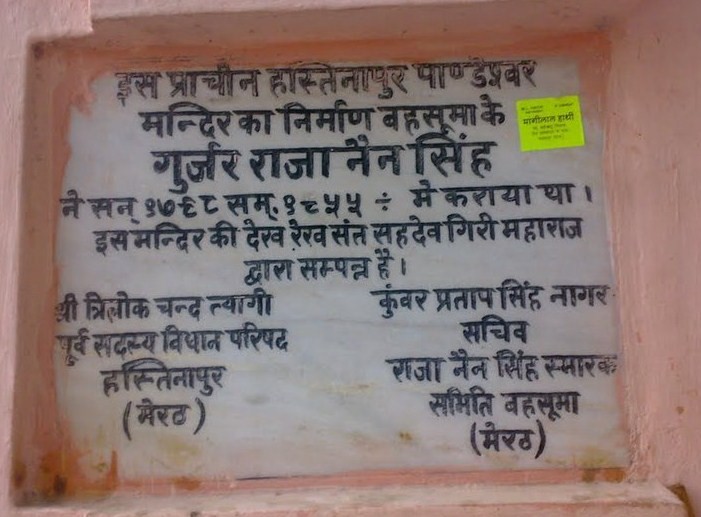 इस प्राचीन हस्तिनापुर पाण्डेश्वर
मन्दिर का निर्माण वहसूमा के
गुर्जर राजा नैन सिंह
ने सन् १७९८ सम्. १८५५ ÷ मे कराया था।
इस मन्दिर की देख रेख संत सहदेव गिरी महाराज
द्वारा सम्पन्न है।
श्री त्रिलोक चन्द त्यागी
पूर्व सदस्य विधान परिषद
हस्तिनापुर
(मेरठ)
कुंवर प्रताप सिंह नागर
सचिव
राजा नैन सिंह स्मारक
समिति वहसूमा
(मेरठ)
मांगीलाल हाथी